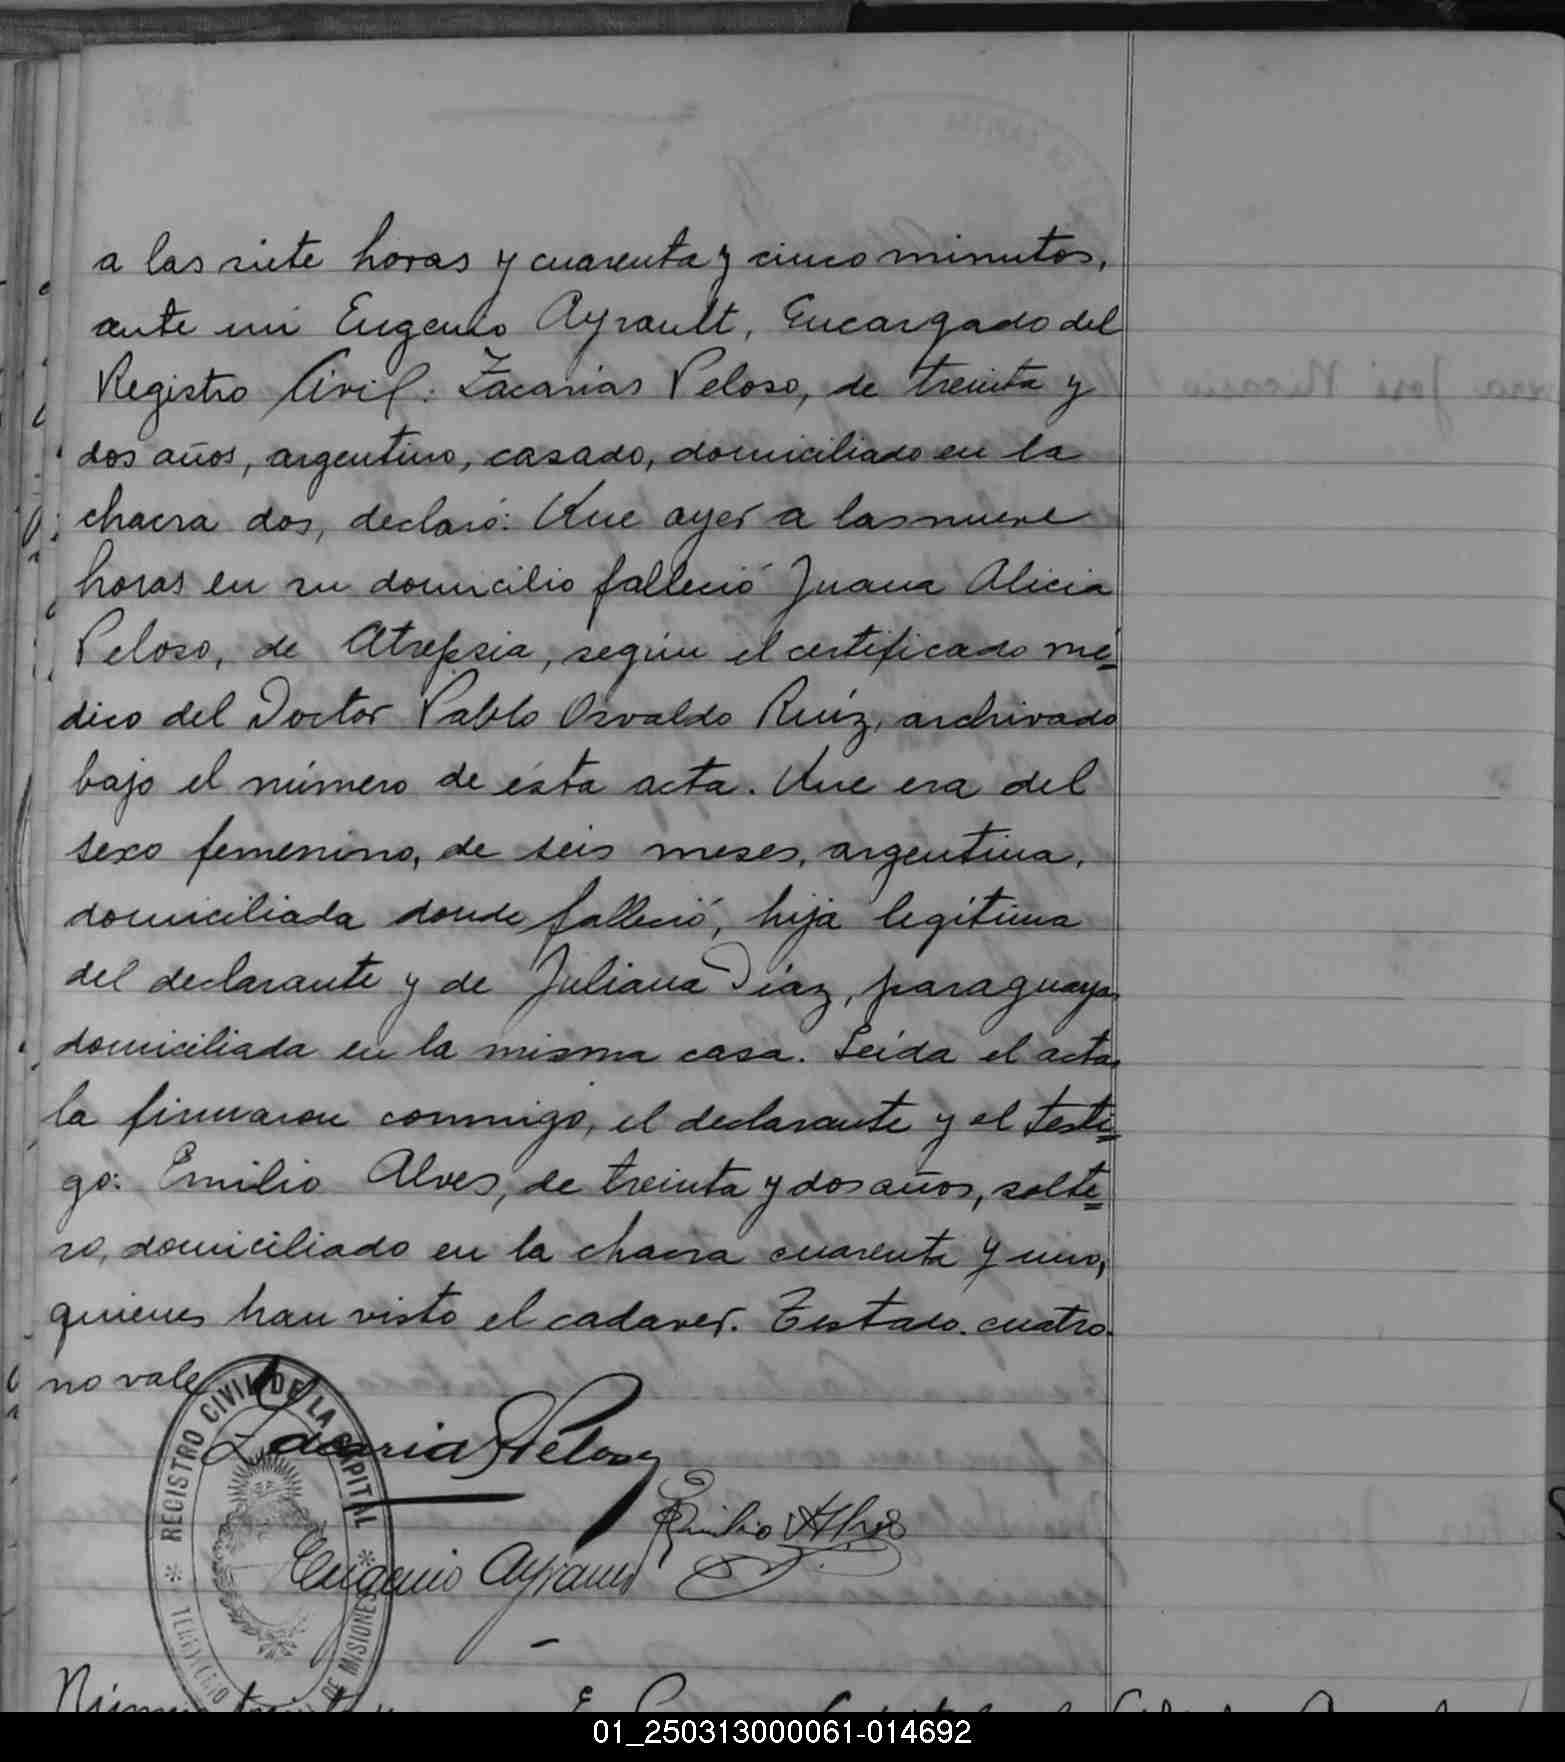 a las siete horas y cuarenta y cinco minutos,
ante mi Eugenio Ayrault, Encargado del
Registro Civil: Zacarias Peloso, de treinta y
dos años, argentino, casado, domiciliado en la
chacra dos, declaró: Que ayer a las nueve
horas en su domicilio falleció Juana Alicia
Peloso, de Atrepsia, según el certificado mé=
dico del Doctor Pablo Osvaldo Ruíz, archivado
bajo el número de ésta acta. Que era del
sexo femenino, de seis meses, argentina,
domiciliada donde falleció, hija legítima
del declarante y de Juliana Díaz, paraguaya
domiciliada en la misma casa. Leída el acta,
la firmaron conmigo, el declarante y el testi=
go: Emilio Alves, de treinta y dos años, solte=
ro, domiciliado en la chacra cuarenta y uno,
quienes han visto el cadaver. Testado. cuatro.
no vale
Zacarias Peloso
Emilio Alves
Eugenio Ayrault
REGISTRO CIVIL DE LA CAPITAL
TERRITORIO DE MISIONES
Número treinta y
01_250313000061-014692